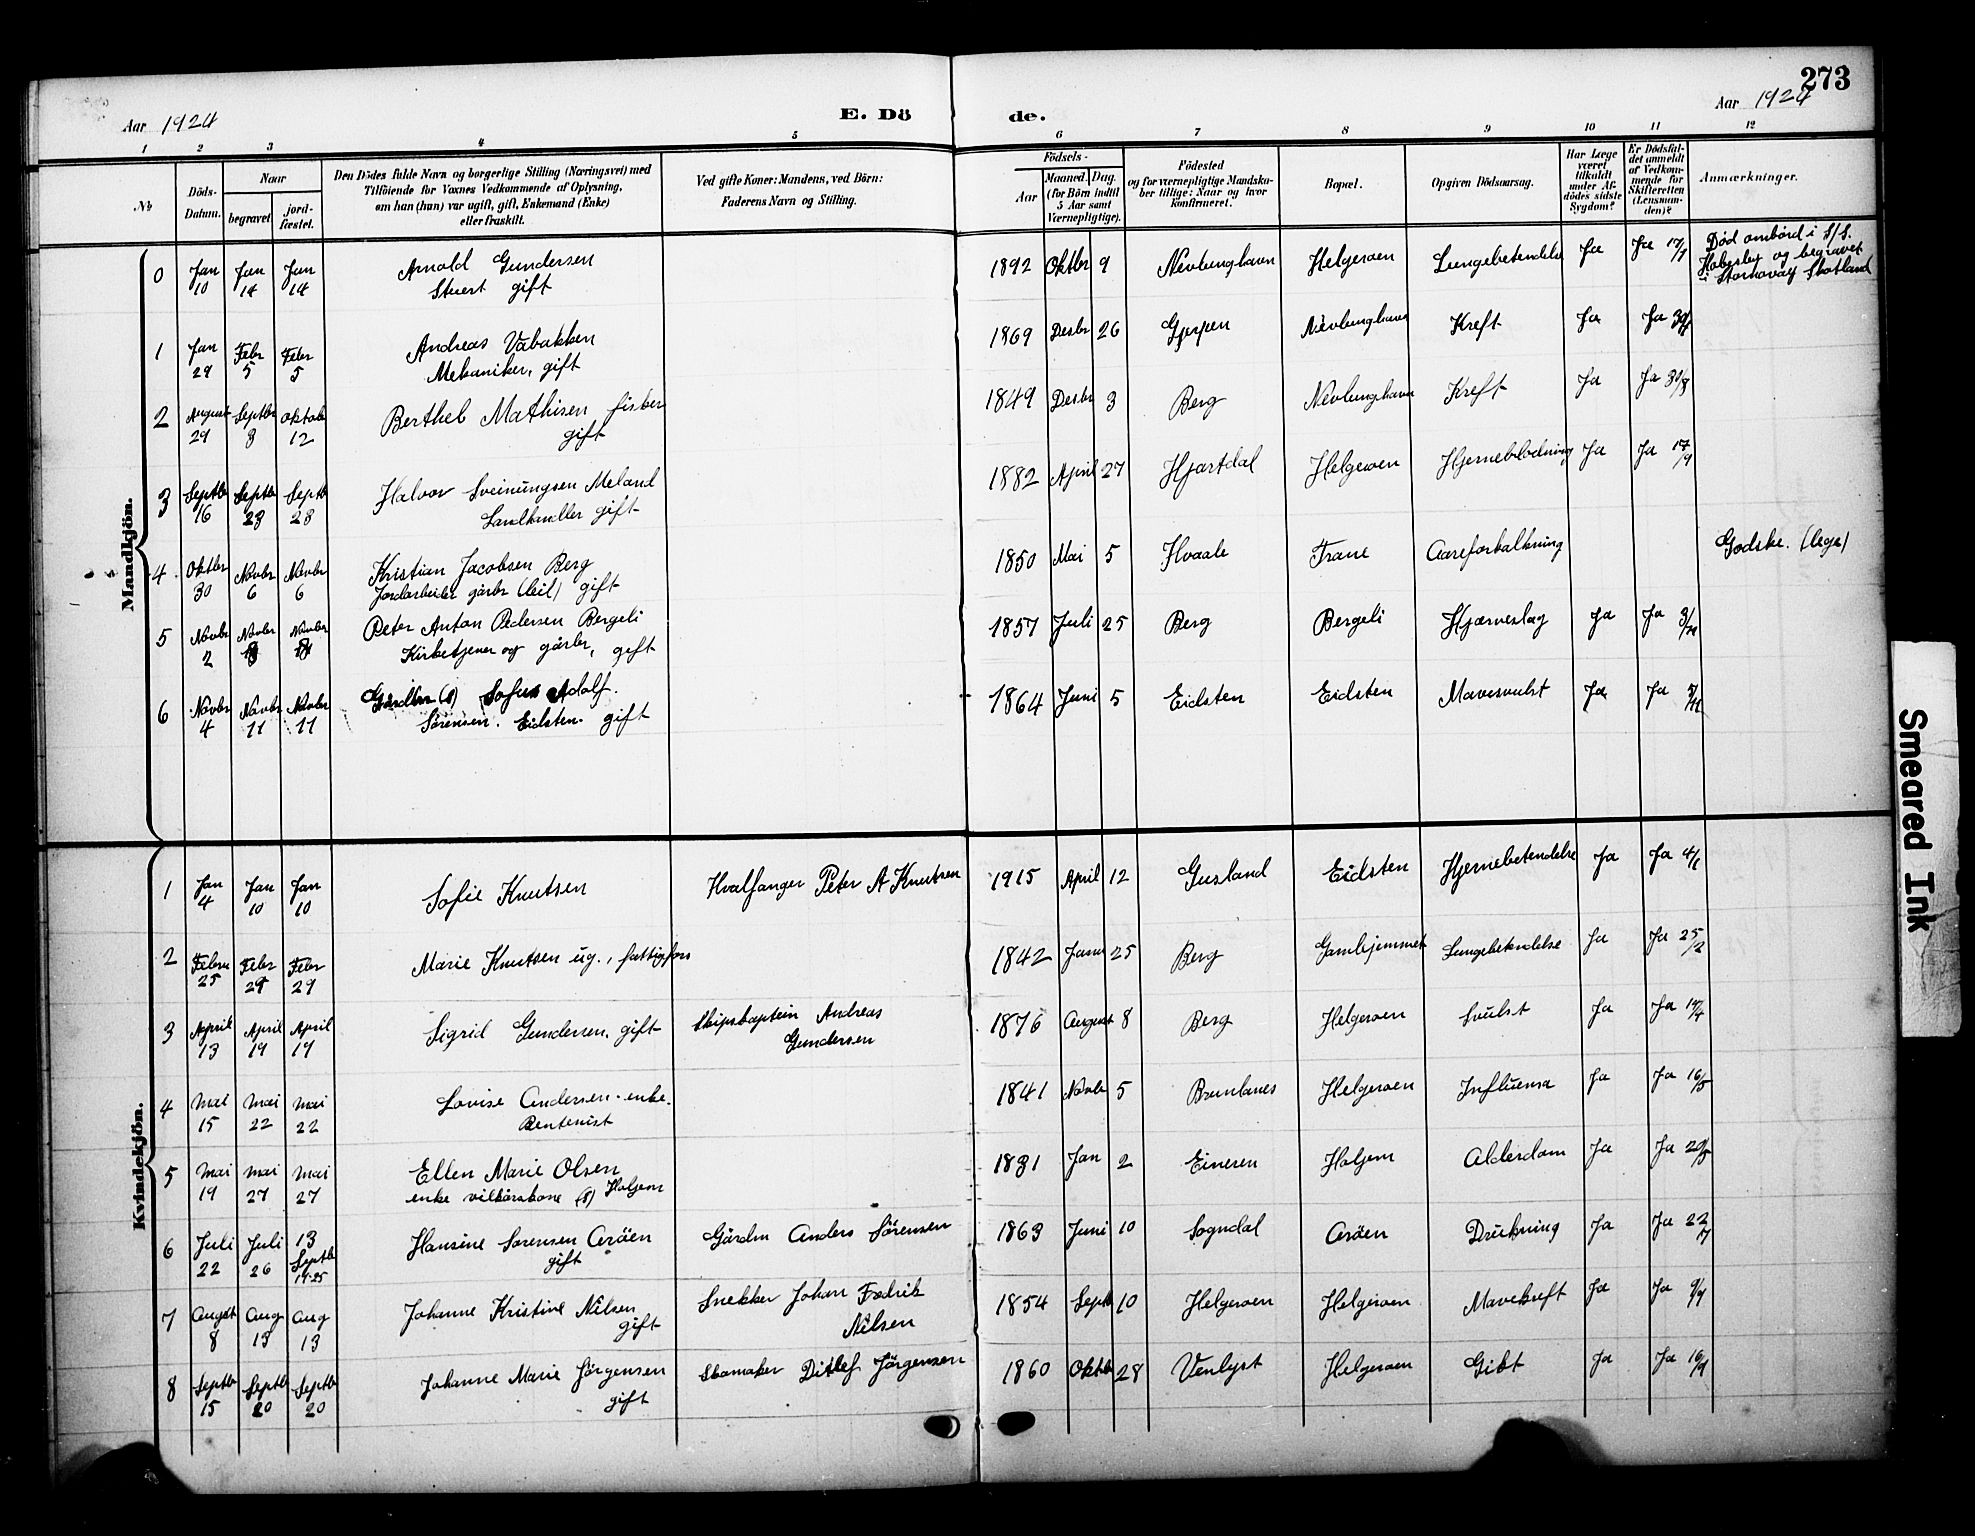 273
Aar 1924
E. Dö
de.
Aar 1924
1 2 3 4 5 6 7 8 9 10 11 12
№
Döds-Datum.
Naar
begravet
jord-fæstet.
Den Dödes fulde Navn og borgerlige Stilling (Næringsvei) med
Tilföiende for Voxnes Vedkommende af Oplysning,
om han (hun) var ugift, gift, Enkemand (Enke)
eller fraskilt.
Ved gifte Koner: Mandens, ved Börn:
Faderens Navn og Stilling.
Födsels-
Aar
Maaned. Dag.
(for Börn indtil
5 Aar samt
Værnepligtige).
Födested
og for værnepligtige Mandska-
ber tillige: Naar og hvor
konfirmeret.
Bopæl.
Opgiven Dödsaarsag.
Har Læge
været
tilkaldt
under Af-
dödes sidste
Sygdom?
Er Dödsfal-
det anmeldt
af Vedkom-
mende for
Skifteretten
(Lensman-
den)?
Anmærkninger.
Mandkjön.
0 Jan 10 Jan 14 Jan 14 Arnold Gundersen 1892 Oktbr 9 Nevlunghavn Helgeroen Lungebetendelse Ja Ja 17/1 Död ombord i S/S.
Stuert gift og begravet
i Stornovay Skotland
1 Jan 29 Febr 5 Febr 5 Andreas Vabakken 1869 Desbr 26 Gjerpen Nevlunghavn Kreft Ja Ja
Mekaniker, gift
2 August 29 Septbr 3 Oktob 12 Berthel Mathisen fisker 1849 Desbr 3 Berg Nevlunghavn Kreft Ja Ja
gift
3 Septbr 16 Septbr 23 Septb 23 Halvor Sveinungsen Meland 1882 April 27 Hjartdal Helgeroen Hjerneblödning Ja Ja 17/9
Landhandler gift
4 Oktbr 30 Novbr 6 Novbr 6 Kristian Jacobsen Berg 1850 Mai 5 Hvaale Trane Aareforkalkning Godske. (lege)
Jordarbeider gårbr (leil) gift
5 Novbr 2 Novbr Novbr Peter Anton Pedersen Bergeli 1857 Juli 25 Berg Bergeli Hjærneslag Ja Ja 3/11
Kirketjener og gårbr, gift
6 Novbr 4 Novbr 11 Novbr 11 Gårdbr (s) Sofus Adolf. 1864 Juni 5 Eidsten Eidsten Mavesvulst Ja Ja 5/11
Sörensen. Eidsten. gift
Kvindekjön.
1 Jan 4 Jan 10 Jan 10 Sofie Knutsen Hvalfanger Peter A Knutsen 1915 April 12 Gusland Eidsten Hjernebetendelse Ja Ja 4/1
2 Febru 25 Febr 29 Febr 29 Marie Knutsen ug., fattigfors 1842 Janu 25 Berg Gamlhjemmet Lungebetendelse Ja Ja 25/2
3 April 13 April 19 April 19 Sigrid Gundersen, gift Skipskaptein Andreas 1876 August 8 Berg Helgeroen Svulst Ja Ja 14/4
Gundersen
4 Mai 15 Mai 22 Mai 22 Lovise Andersen. enke. 1841 Novbr 5 Brunlanes Helgeroen Influensa Ja Ja 16/5
Rentenist
5 Mai 19 Mai 27 Mai 27 Ellen Marie Olsen 1831 Jan 2 Eineren Holjem Alderdom Ja Ja 20/5
enke vilkårskone (s) Holjem
6 Juli 22 Juli 26 13 Septb 14-25 Hansine Sorensen Aröen Gårdm Anders Sörensen 1863 Juni 10 Sogndal Aröen Drukning Ja Ja 22/7
gift
7 August 8 Aug 13 Aug 13 Johanne Kristine Nilsen Snekker Johan Fredrik 1854 Septb 10 Helgeroen Helgeroen Mavekreft Ja Ja
gift Nilsen
8 Septb 15 Septb 20 Septb 20 Johanne Marie Jörgensen Skomaker Ditlef Jörgensen 1860 Oktbr 28 Venlyst Helgeroen Gikt Ja Ja 16/9
gift
Smeared Ink